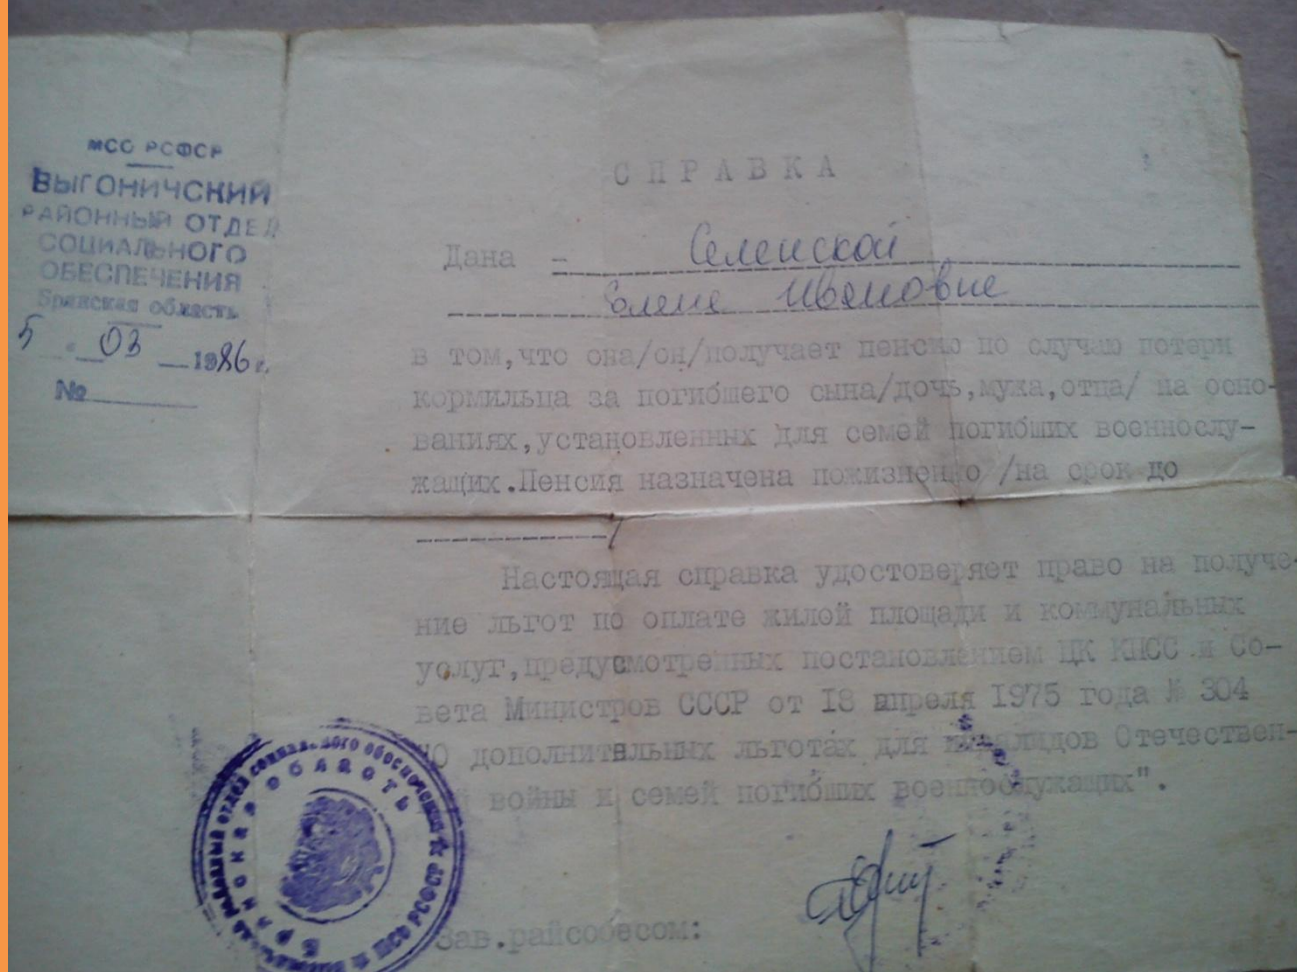 МСО РСФСР
ВЫГОНИЧСКИЙ
РАЙОННЫЙ ОТДЕЛ
СОЦИАЛЬНОГО
ОБЕСПЕЧЕНИЯ
Брянская область
5 . 03 1986 г.
№
СПРАВКА
Дана - Селенской
Елене Ивановне
в том,что она/он/получает пенсию по случаю потери
кормильца за погибшего сына/дочь,мужа,отца/ на осно-
ваниях,установленных для семей погибших военнослу-
жащих.Пенсия назначена пожизненно /на срок до
/
Настоящая справка удостоверяет право на получе-
ние льгот по оплате жилой площади и коммунальных
услуг,предусмотренных постановлением ЦК КПСС и Со-
вета Министров СССР от 18 апреля 1975 года № 304
"О дополнительных льготах для инвалидов Отечествен-
ной войны и семей погибших военнослужащих".
районный отдел социального обеспечения ★ МСО РСФСР ★
БРЯНСКАЯ ОБЛАСТЬ
Зав.райсобесом: